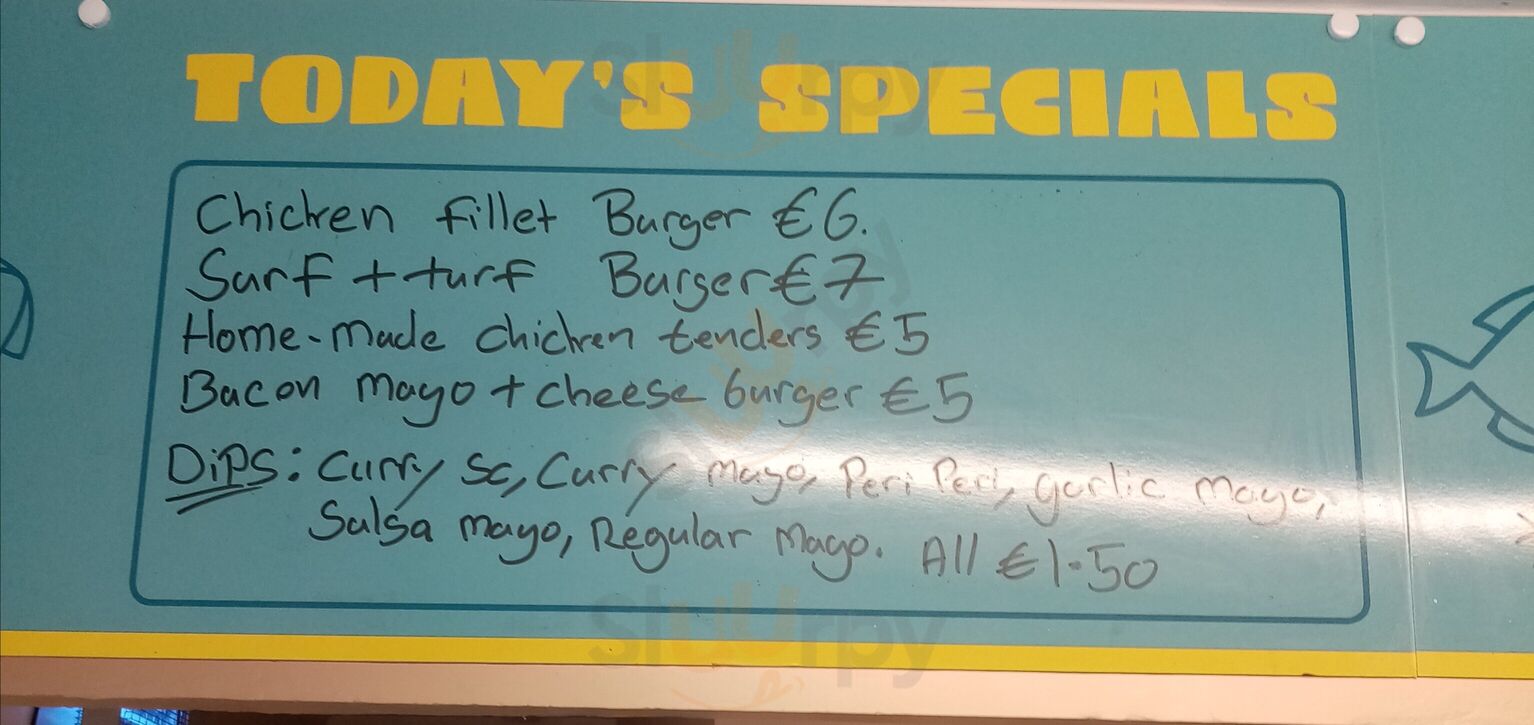 TODAY'S SPECIALS
Chicken fillet Burger €6.
Surf + turf Burger €7
Home-made chicken tenders €5
Bacon mayo + cheese burger €5
DiPS: Curry Sc, Curry mayo, Peri Peri, garlic mayo,
Salsa mayo, Regular mayo. All €1.50
sluurpy
sluurpy
sluurpy